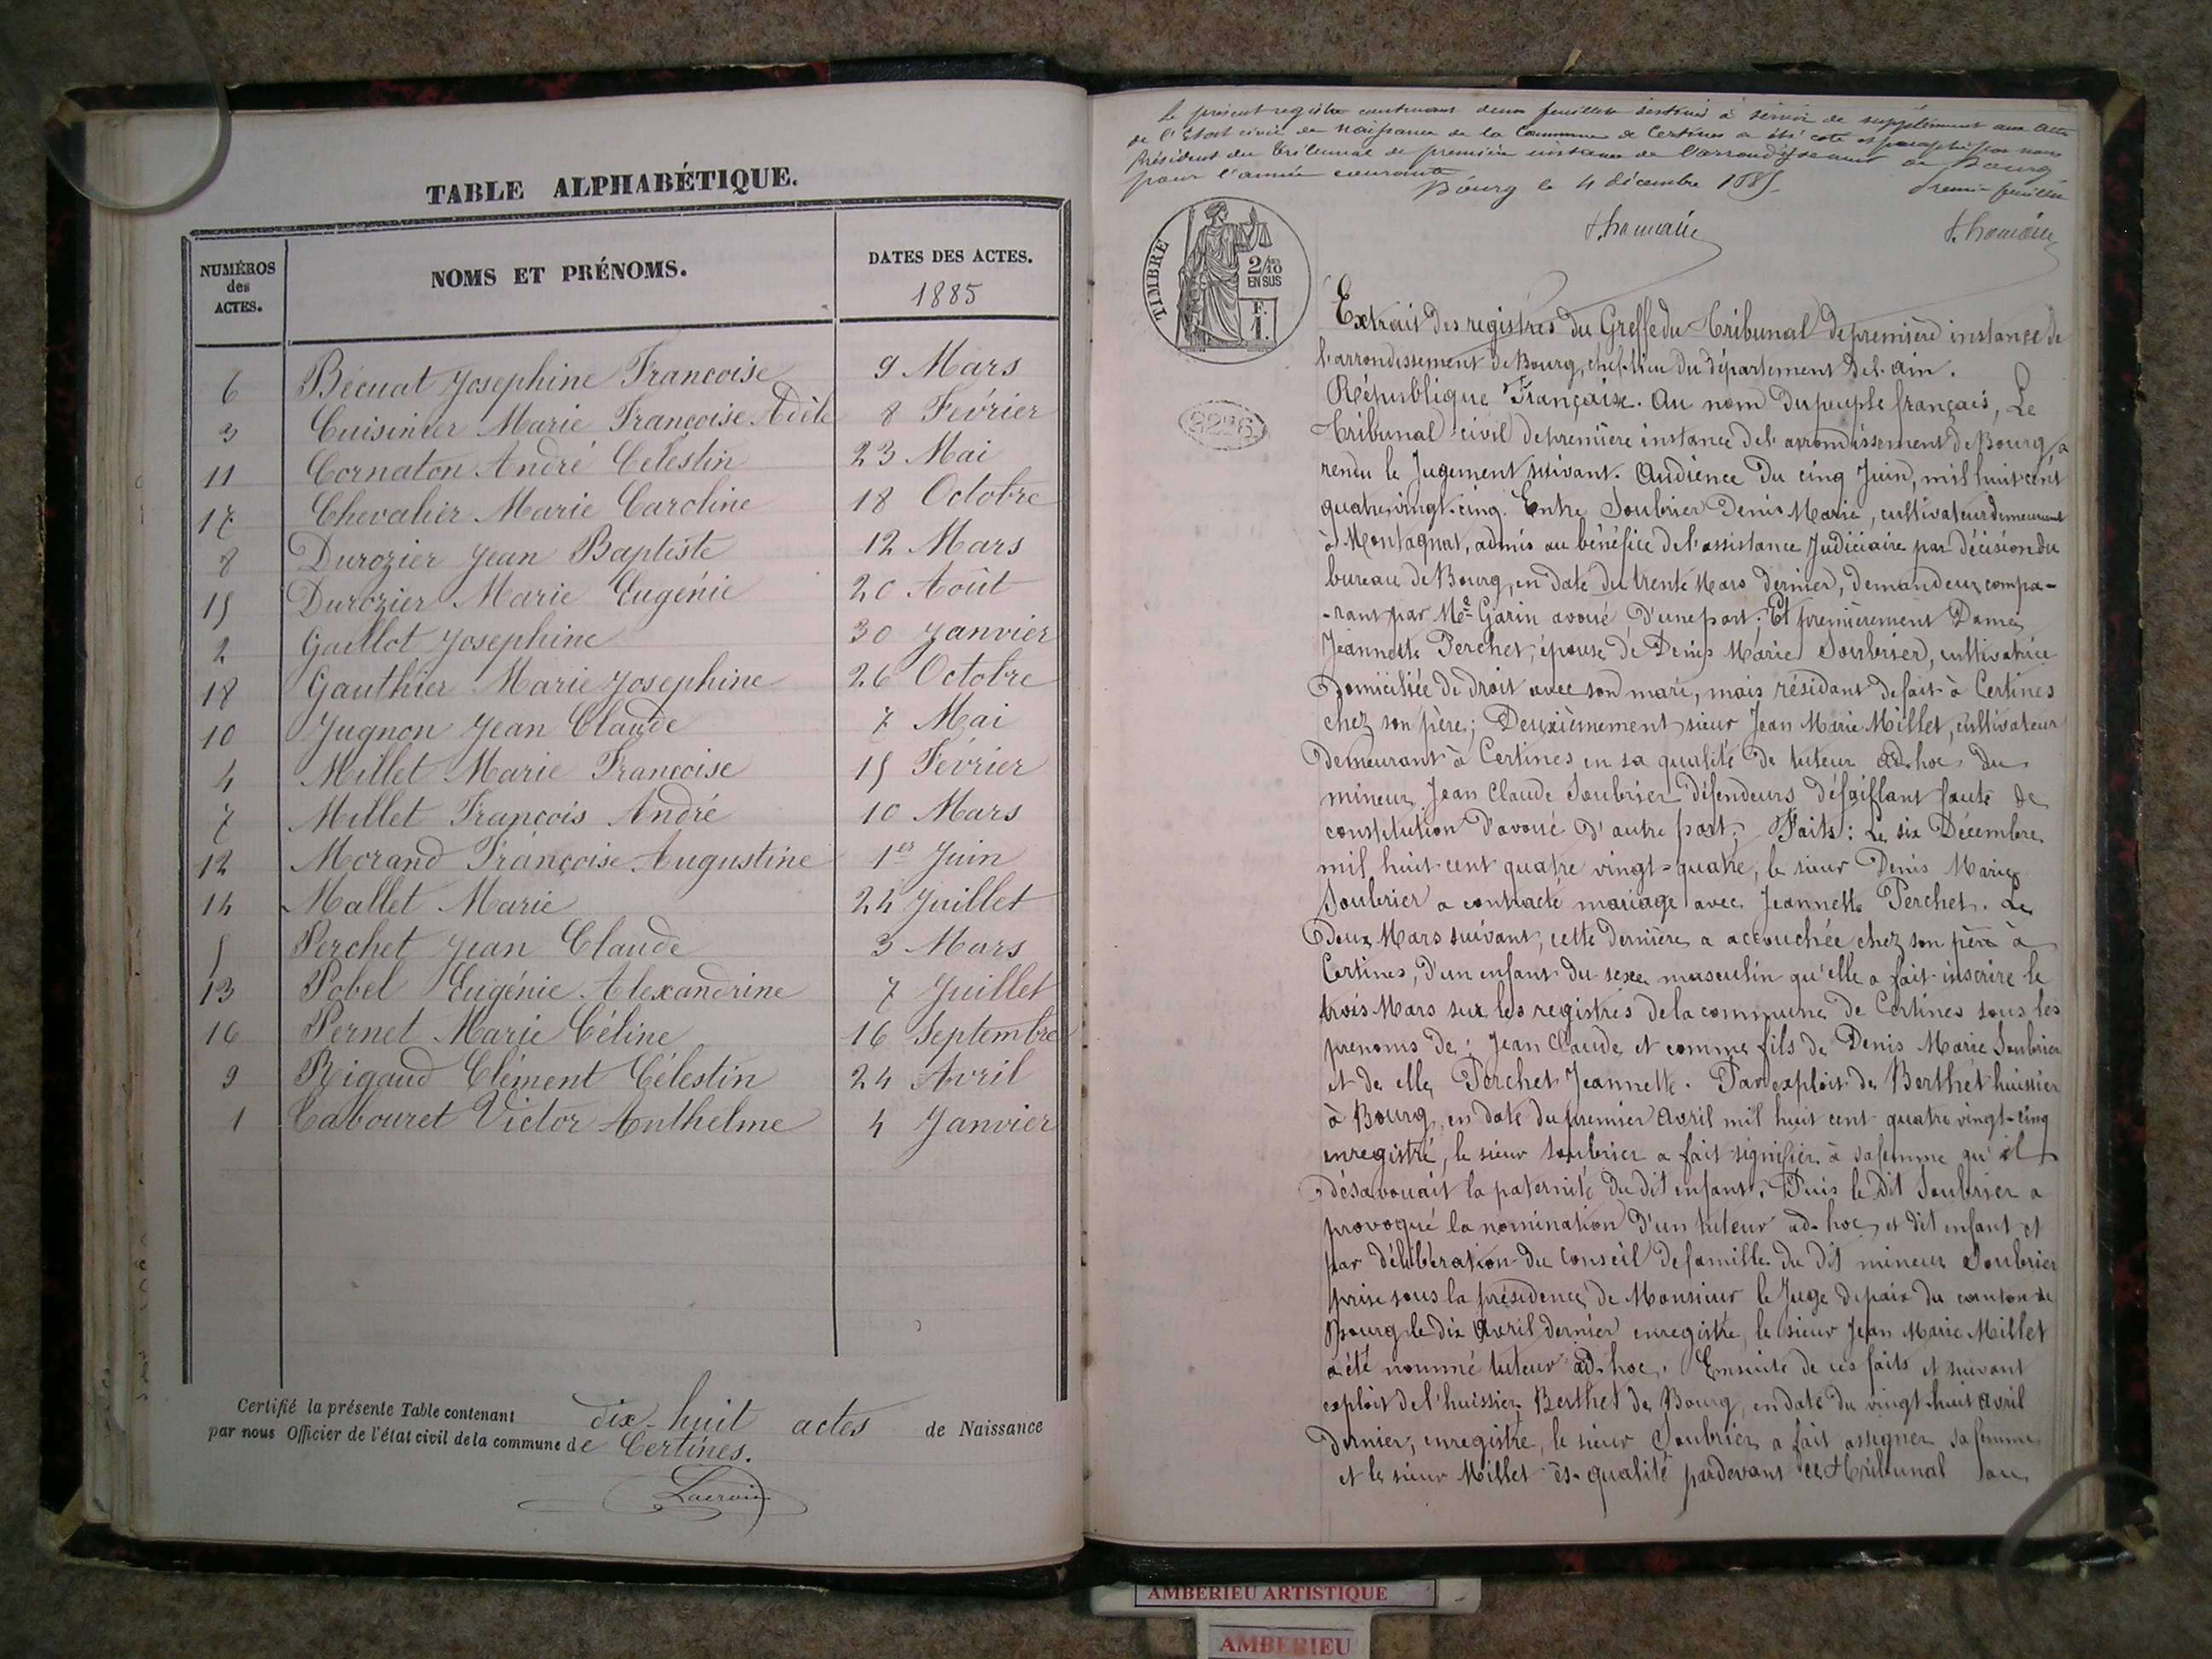 TABLE ALPHABÉTIQUE.
NUMÉROS des ACTES.
NOMS ET PRÉNOMS.
DATES DES ACTES.
1885
6 Bécuat Josephine Francoise 9 Mars
3 Cuisinier Marie Francoise Adèle 8 Février
11 Cornaton André Célestin 23 Mai
17 Chevalier Marie Caroline 18 Octobre
8 Durozier Jean Baptiste 12 Mars
15 Durozier Marie Eugénie 20 Août
2 Gaillot Josephine 30 Janvier
18 Gauthier Marie Josephine 26 Octobre
10 Jugnon Jean Claude 7 Mai
4 Millet Marie Francoise 15 Février
7 Millet François André 10 Mars
12 Morand Françoise Augustine 1er Juin
14 Mallet Marie 24 Juillet
5 Perchet Jean Claude 3 Mars
13 Pobel Eugénie Alexandrine 7 Juillet
16 Pernet Marie Céline 16 Septembre
9 Rigaud Clément Célestin 24 Avril
1 Cabouret Victor Anthelme 4 Janvier
Certifié la présente Table contenant dix-huit actes de Naissance
par nous Officier de l'état civil de la commune de Certines.
Lacroix
Le présent registre contenant deux feuillets destiné à servir de supplément aux actes
de l'Etat civil de Naissance de la Commune de Certines a été coté et paraphé par nous
Président du Tribunal de première instance de l'arrondissement de Bourg
pour l'année courante
Bourg le 4 décembre 1885
Premier feuillet
TIMBRE
2/10
EN SUS
F.
1.
Extrait des registres du Greffe du Tribunal de première instance de
l'arrondissement de Bourg, chef-lieu du département de l'ain.
République Française. Au nom du peuple français, Le
Tribunal civil de première instance de l'arrondissement de Bourg, a
rendu le Jugement suivant. Audience du cinq Juin, mil huit cent
quatre vingt-cinq. Entre Soubrier Denis Marie, cultivateur demeurant
à Montagnat, admis au bénéfice de l'assistance Judiciaire par décision du
bureau de Bourg, en date du trente Mars dernier, demandeur, compa-
-rant par Me Garin avoué d'une part. Et premièrement Dame
Jeannette Perchet, épouse de Denis Marie Soubrier, cultivatrice
domiciliée de droit avec son mari, mais résidant de fait à Certines
chez son père; Deuxièmement sieur Jean Marie Millet, cultivateur
demeurant à Certines en sa qualité de tuteur ad-hoc du
mineur Jean Claude Soubrier défendeurs défaillant faute de
constitution d'avoué d'autre part; Faits: Le six Décembre
mil huit cent quatre vingt-quatre, le sieur Denis Marie
Soubrier a contracté mariage avec Jeannette Perchet. Le
deux Mars suivant, cette dernière a accouchée chez son père à
Certines, d'un enfant du sexe masculin qu'elle a fait inscrire le
trois Mars sur les registres de la commune de Certines sous les
prenoms de: Jean Claude et comme fils de Denis Marie Soubrier
et de elle Perchet Jeannette. Par exploit de Berthet huissier
à Bourg, en date du premier avril mil huit cent quatre vingt-cinq
enregistré, le sieur Soubrier a fait signifier à sa femme qu'il
désavouait la paternité du dit enfant. Puis le dit Soubrier a
provoqué la nomination d'un tuteur ad-hoc et dit enfant et
par délibération du conseil de famille du dit mineur Soubrier
prise sous la présidence de Monsieur le Juge de paix du canton de
Bourg le dix avril dernier enregistré, le sieur Jean Marie Millet
a été nommé tuteur ad-hoc. Ensuite de ces faits et suivant
exploit de l'huissier Berthet de Bourg, en date du vingt huit avril
dernier, enregistré, le sieur Soubrier a fait assigner sa femme
et le sieur Millet ès-qualité pardevant ce Tribunal
AMBERIEU ARTISTIQUE
AMBERIEU